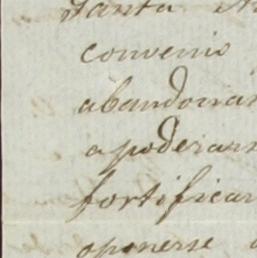 Santa
convenio
abandonar
apoderars
fortificar
oponerse